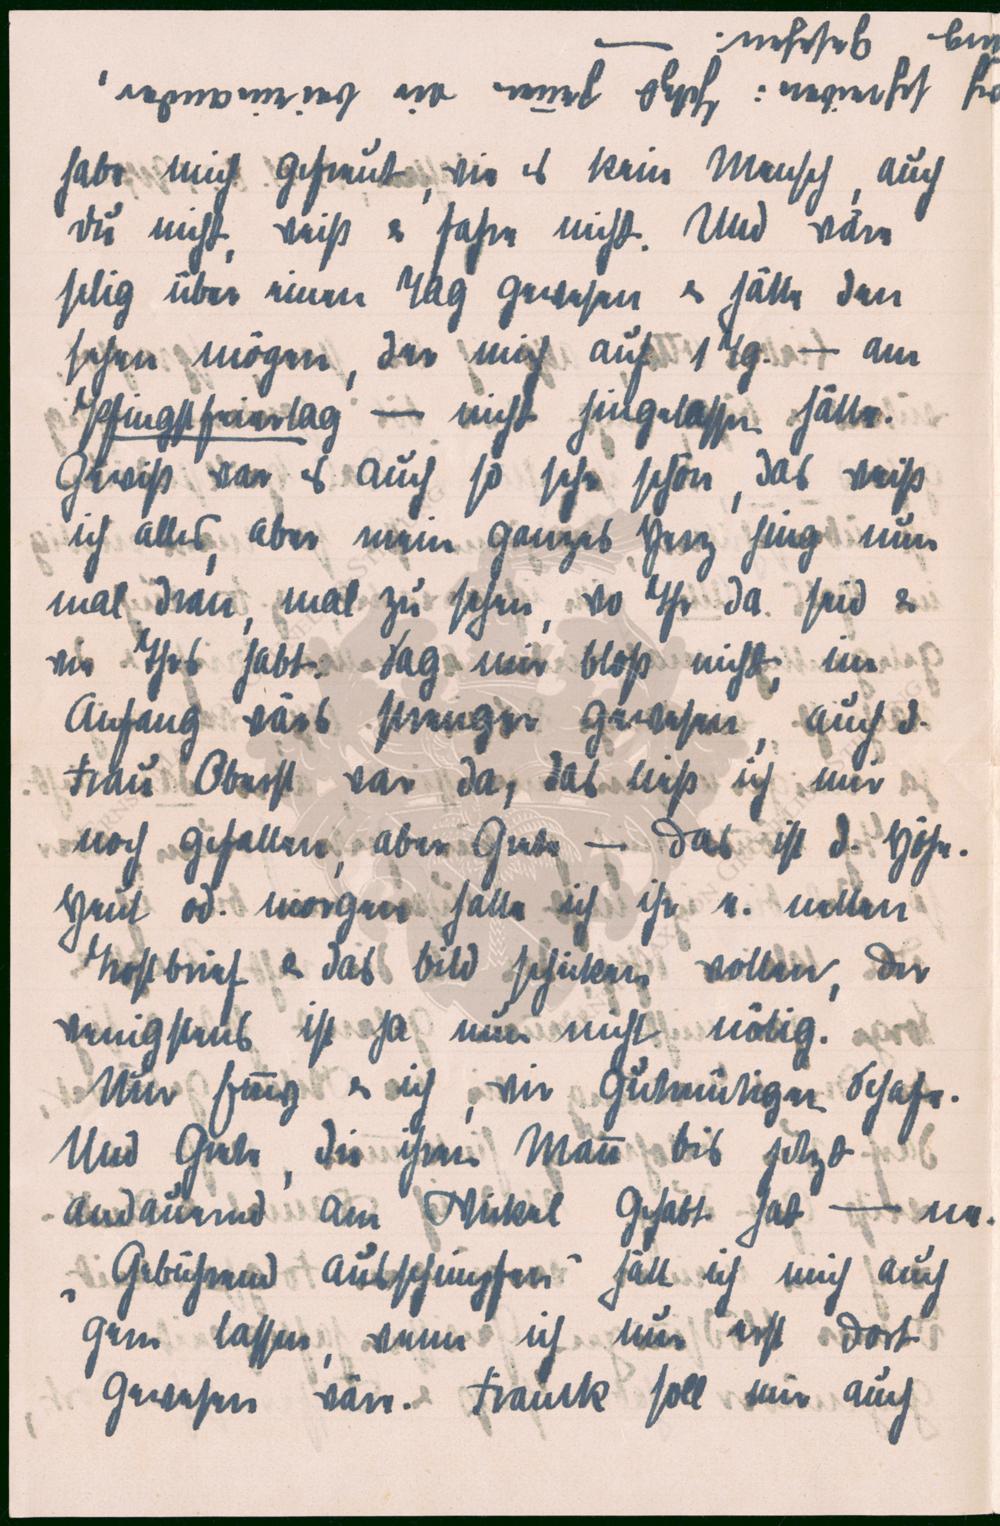 habe mich gefreut, wie es kein Mensch, auch
Du nicht, weiß & sahn nicht. Und wäre
selig über einen Tag gewesen & hätte den
sehen mögen, der mich auf 1 Tg. — am
Pfingstfeiertag — nicht hingelassen hätte.
Gewiß war es auch so sehr schön, das weiß
ich alles, aber mein ganzes Herz hing nun
mal dran, mal zu sehen, wo Ihr da seid &
wie Ihrs habt. Sag mir bloß nicht, im
Anfang wärs strenger gewesen, auch d.
Frau Oberst war da, das ließ ich mir
noch gefallen, aber Grete — das ist d. Höhe.
Heut od. morgen hatte ich ihr e. netten
Trostbrief & das Bild schicken wollen, der
wenigstens ist ja nun nicht nötig.
Nur & ich, wir gutmütigen Schafe.
Und Grete, die ihren Mann bis jetzt
andauernd am Wickel gehabt hat — ne.
„Gebührend ausschimpfen" hätt ich mich auch
gern lassen, wenn ich nur erst dort
gewesen wäre. Franck soll mir auch